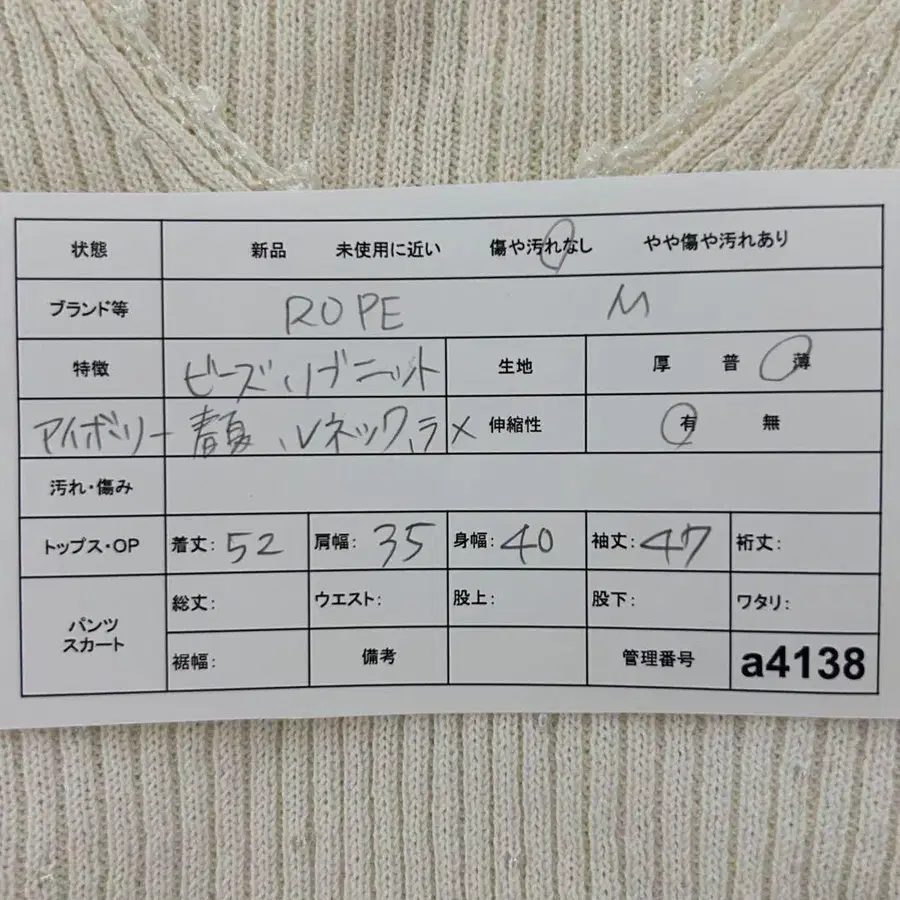 状態 新品 未使用に近い 傷や汚れなし やや傷や汚れあり
ブランド等 ROPE M
特徴 ビーズ、リブニット 生地 厚 普 薄
アイボリー 春夏、Vネック、ラメ 伸縮性 有 無
汚れ・傷み
トップス・OP 着丈: 52 肩幅: 35 身幅: 40 袖丈: 47 裄丈:
パンツ スカート 総丈: ウエスト: 股上: 股下: ワタリ:
裾幅: 備考 管理番号 a4138